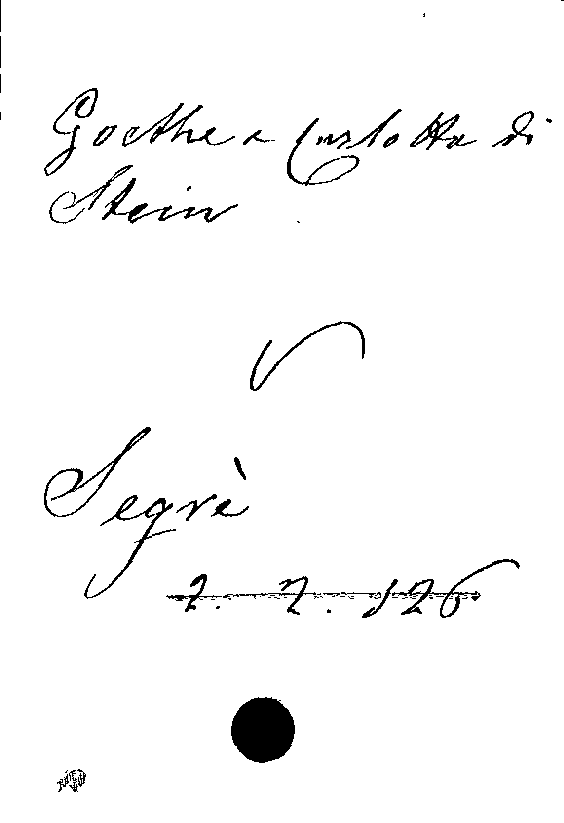 Goethe a Carlotta di
Stein
V
Segrè
2. 2. 126.